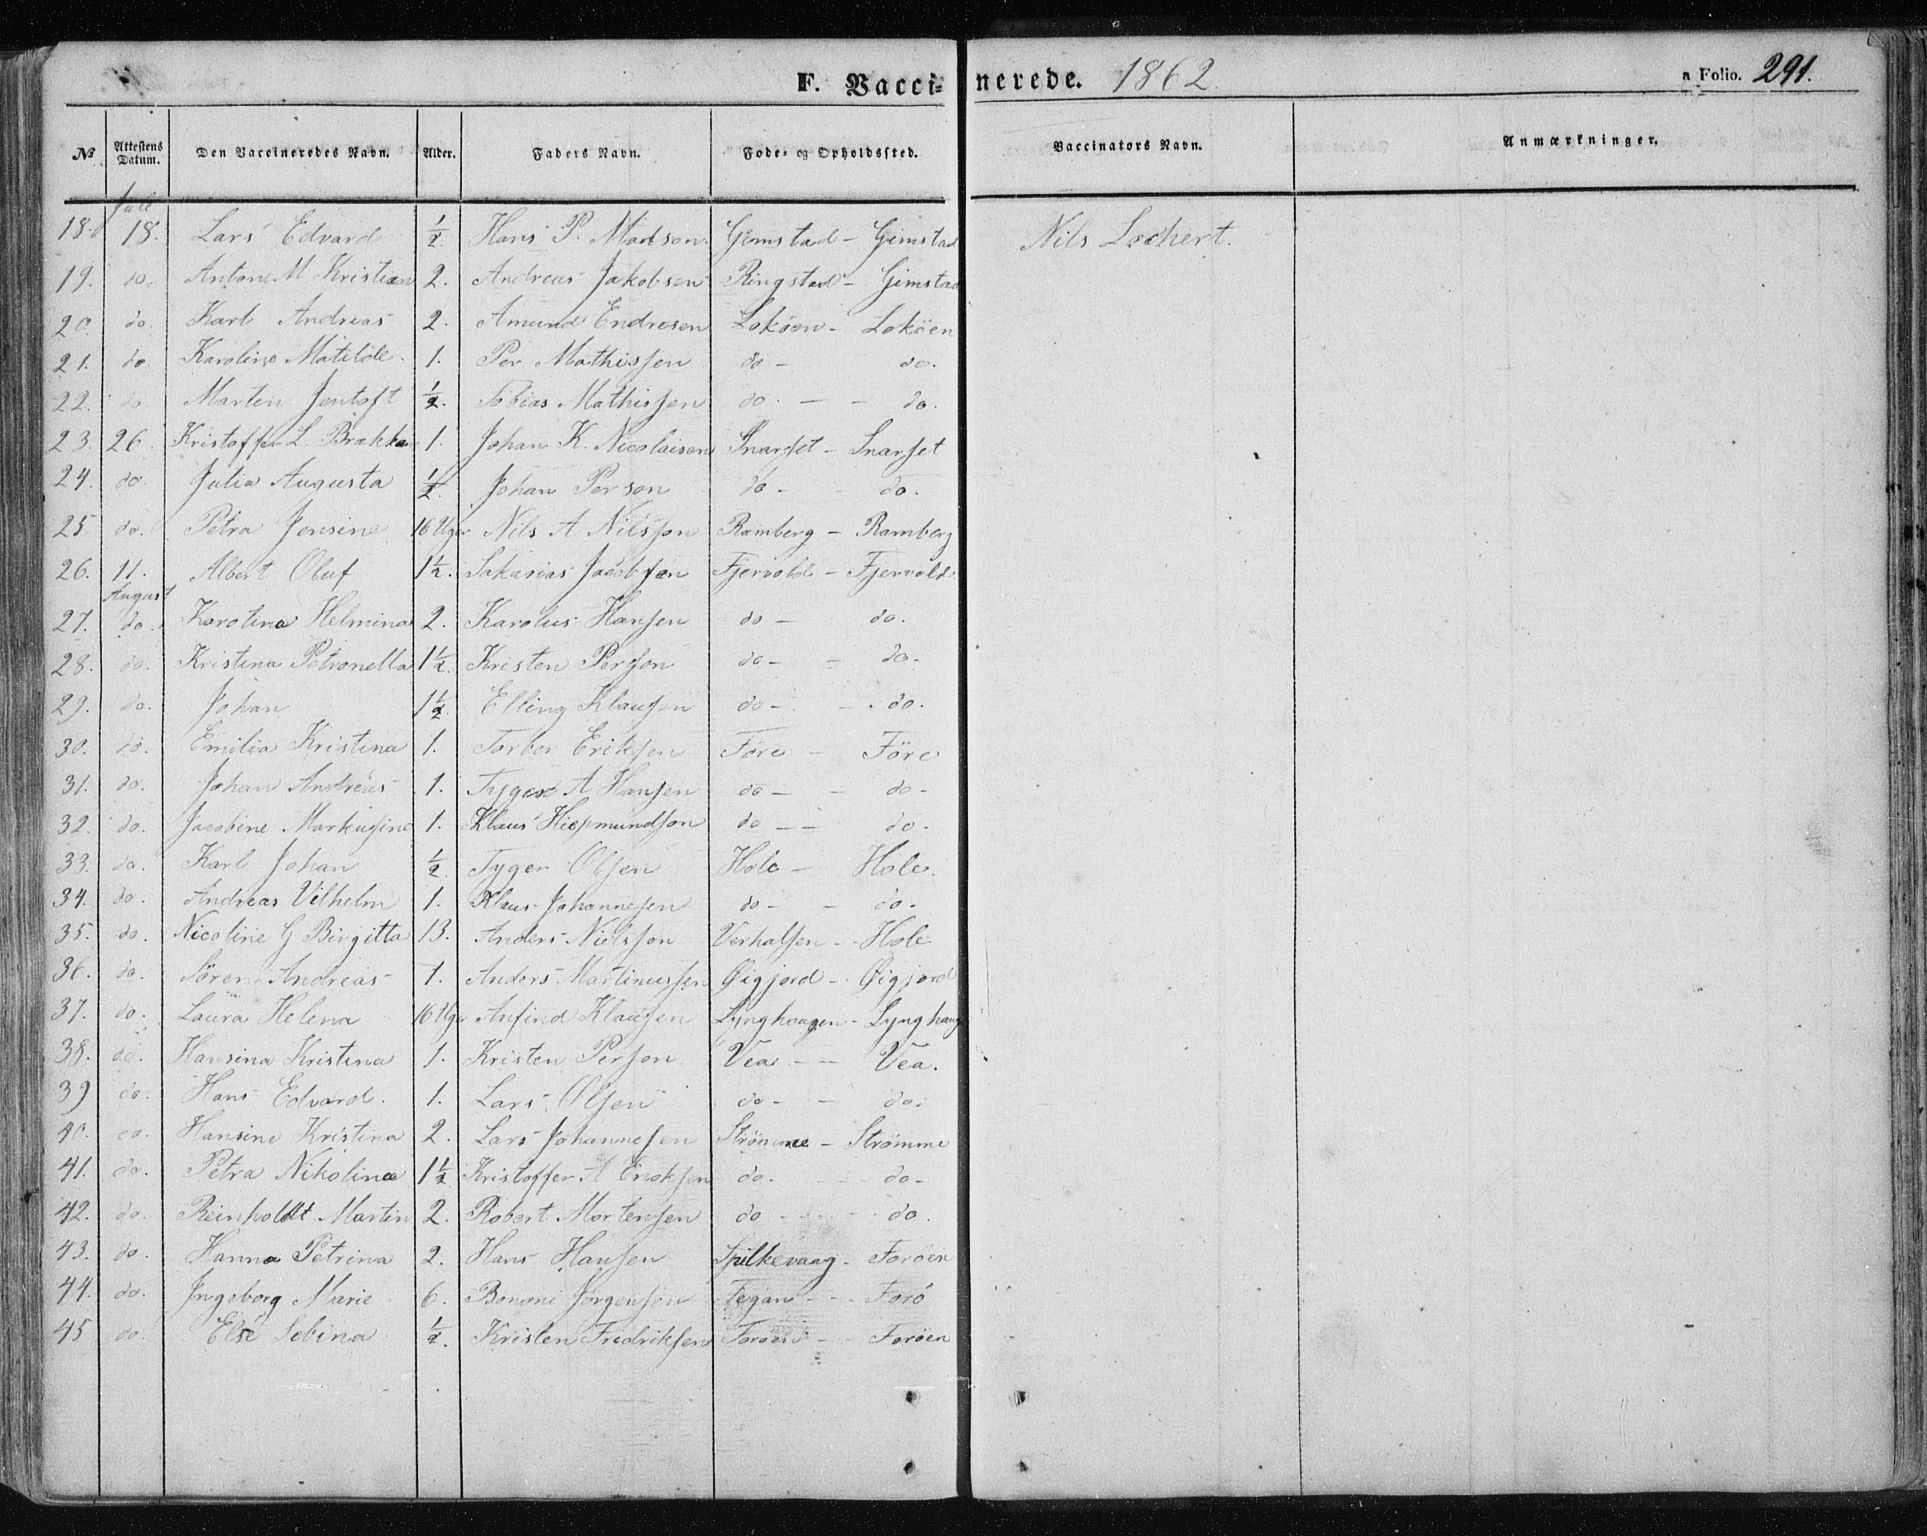 F. Vaccinerede. 1862 a Folio. 291.
№ Attestens Datum. Den Vaccineredes Navn. Alder. Faders Navn. Føde- og Opholdssted. Vaccinators Navn. Anmærkninger.
Juli
18. 18. Lars Edvard ½ Hans P. Madsen Gimstad - Gimstad Nils Lochert.
19. do. Anton M Kristian 2. Andreas Jakobsen Ringstad - Gimstad
20. do. Karl Andreas 2. Amund Endresen Loköen - Loköen
21. do. Karoline Matilde. 1. Per Mathissen do - do.
22. do Marten Jentoft ½. Tobias Mathissen do. - - do.
23. 26. Kristoffer L. Brekke 1. Johan K. Nicolaisen Snarset - Snarset
24. do. Julia Augusta ½. Johan Person do - - do.
25 do. Petra Jensine 16 Uger Nils A Nilsson Ramberg - Ramberg
26. 11. Albert Oluf 1½. Sakarias Jacobsen Fjervold - Fjervold
August
27. do. Karolina Helmina 2. Karolus Hansen do - do.
28. do. Kristina Petronella 1½. Kristen Person do - - do-
29. do. Johan 1½. Elling Klausen do - - . do.
30. do. Emilia Kristina 1. Torber Eriksen Føre - Före
31. do. Johan Andreas 1. Tyger A Hansen do - - do-
32. do. Jacobine Markusine 1. Klaus do - - do.
33. do. Karl Johan ½ Tyger Olsen Hole - Hole.
34. do. Andreas Vilhelm 1. Klaus Johannesen do - - do.
35. do. Nicoline G Birgitta 13. Anders Nielsson Verhalsen - Hole
36. do. Søren Andreas 1. Anders Martinussen Øigjord - Øigjord
37. do. Laura Helena 16 Uger Anfind Klausen Lynghaugen - Lynghaug
38. do. Hansina Kristina 1. Kristen Person Vea - - Vea.
39 do. Hans Edvard. 1. Lars Olsen do - - do.
40. do. Hansine Kristina 2. Lars Johannesen Strömme - Strömme
41. do. Petra Nikolina 1½ Kristoffer A Eriksen do. do-
42. do. Reinholdt Martin 2. Robert Mortensen do - - do.
43. do. Hanna Petrina 2. Hans Hansen Spilkevaag - Foröen
44. do. Ingeborg Marie 6. Bononi Jørgensen Tegan - - Forö
45 do. Else Sebina ½. Kristen Fredriksen Foröen - Foröen